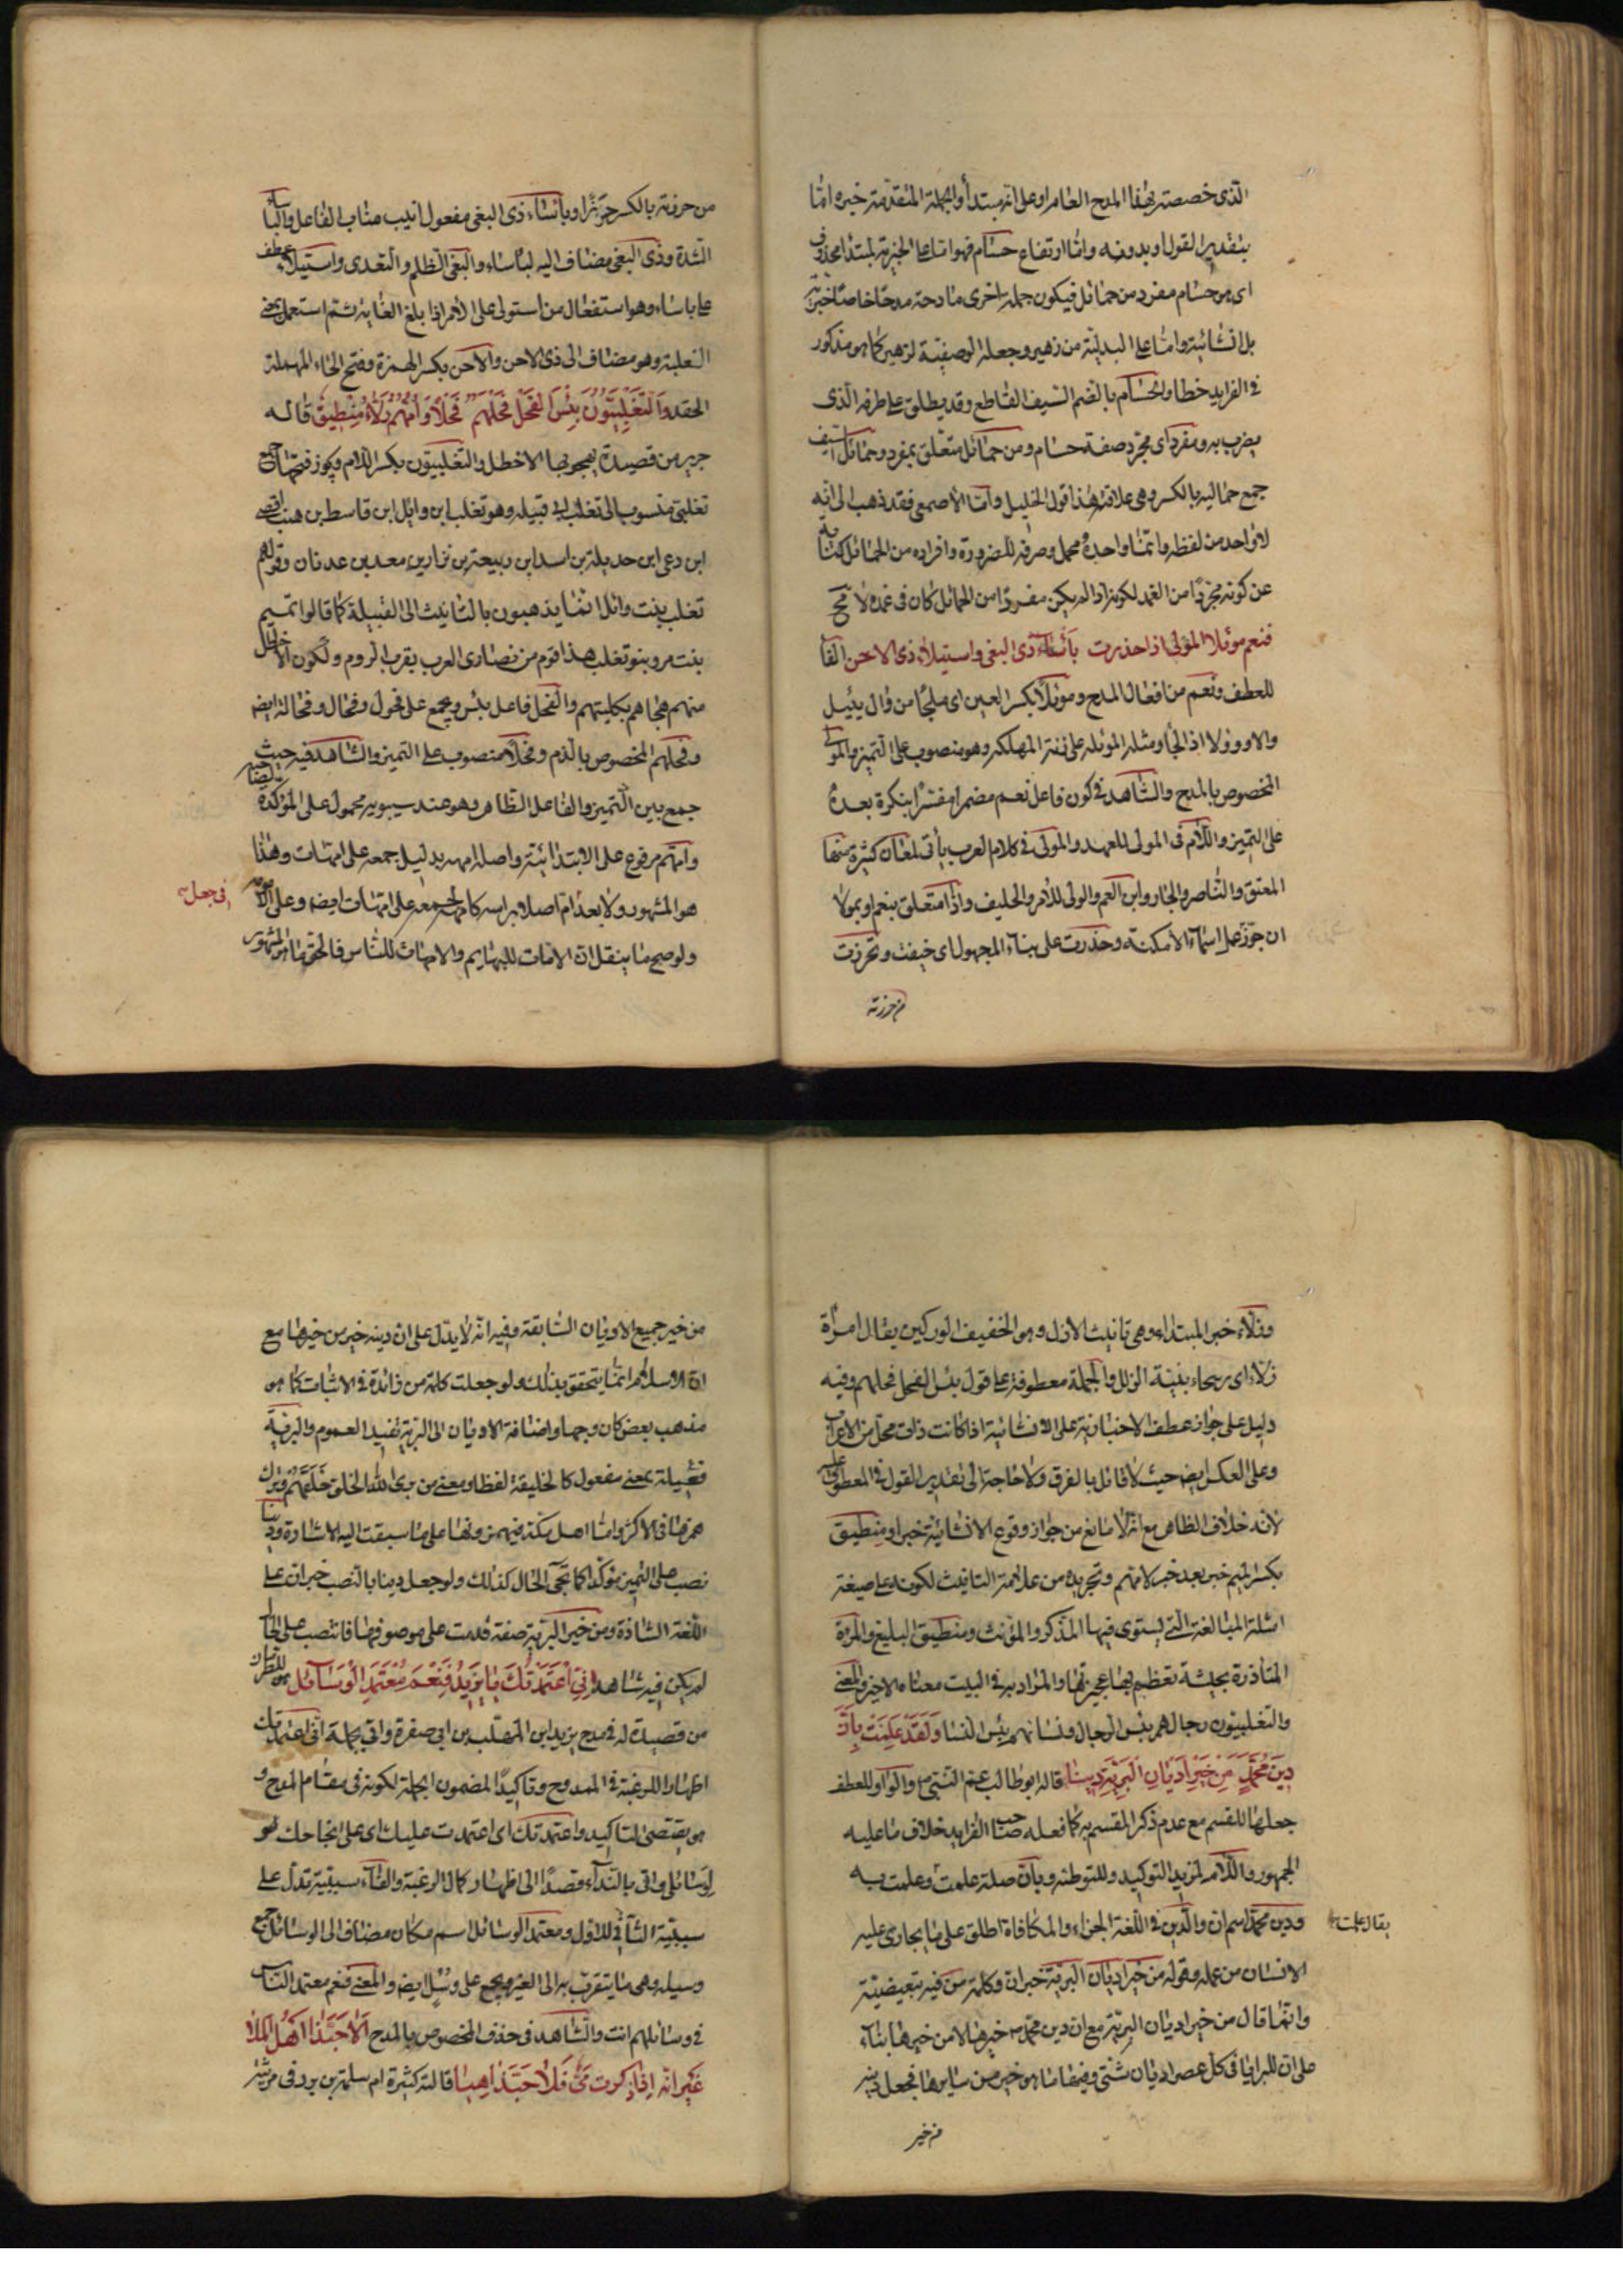 الذى خصصته بهذا المدح العام او على انه مبتدأ والجملة المتقدمة خبره اما
بتقدير القول او بدونه واما ارتفاع حسام فهو اما على الخبرية لمبتدأ محذوف
اى هو حسام مفرد من حمائل فيكون جملة اخرى مادحة مدحا خاصا خبرية
بل انشائية واما على البدلية من زهير وجعله الوصفية لزهير كما هو مذكور
فى الفرايد خطا والحسام بالضم السيف القاطع وقد يطلق على طرفه الذى
يضرب به ومفردا اى مجرد صفة حسام ومن حمائل متعلق بمفرد وحمائل السيف
جمع حمالة بالكسر وهى علاقته هذا قول الخليل واما الأصمعى فقد ذهب الى انه
لا واحد من لفظه وانما واحده محمل وصرفه للضرورة وافراده من الحمائل كناية
عن كونه مجردا من الغمد لكونه اذا لم يكن مفردا من الحمائل كان فى غمده لا مح
فنعم موئلا المولى اذا حذرت بأساء ذى البغى واستيلاء ذى الاحن الفا
للعطف ونعم من افعال المدح وموئلا بكسر العين اى ملجأ من وال يئيل
والا ووؤلا اذا لجأ ومثله الموئلة على زنة المهلكة وهو منصوب على التميز والمولى
المخصوص بالمدح والشاهد فى كون فاعل نعم مضمرا مفسرا بنكرة بعده
على التميز واللام فى المولى للعهد والمولى فى كلام العرب يأتى لمعان كثيرة منها
المعتق والناصر والجار وابن العم والولى للأمر والحليف واذا متعلق بنعم او بمولا
ان جوز عمل اسماء الأمكنة وحذرت على بناء المجهول اى خيفت وتحرزت
من حرزته
من حرزته بالكسر حرزا وبأساء ذى البغى مفعول انيب مناب الفاعل والبأساء
الشدة وذى البغى مضاف اليه لبأساء والبغى الظلم والتعدى واستيلاء عطف
على باساء وهو استفعال من استولى على الأمر اذا بلغ الغاية ثم استعمل بمعنى
الغلبة وهو مضاف الى ذى الاحن والاحن بكسر الهمزة وفتح الحاء المهملة
الحقد والتغلبيون بئس الفحل فحلهم فحلا وأمهم زلاء منطيق قاله
جرير من قصيدة يهجو بها الاخطل والتغلبيون بكسر اللام ويجوز فتحها جمع
تغلبى منسوب الى تغلب ابى قبيلة وهو تغلب ابن وايل ابن قاسط بن هنب ابن افصى
ابن دعمى ابن جديلة بن اسد ابن ربيعة بن نزار بن معد بن عدنان وقولهم
تغلب بنت وائل انما يذهبون بالتانيث الى القبيلة كما قالوا تميم
بنت مر وبنو تغلب هذا قوم من نصارى العرب بقرب الروم ولكون الاخطل
منهم هجاهم بكليتهم والفحل فاعل بئس ويجمع على فحول وفحال وفحالة ايضا
وفحلهم المخصوص بالذم وفحلا منصوب على التميز والشاهد فيه حيث
جمع بين التميز والفاعل الظاهر وهو عند سيبويه محمول على المؤكدة
وامهم مرفوع على الابتدائية واصله امهه بدليل جمعه على امهات وهذا
هو المشهور ولا يعد ام اصلا براسه كامهة لجمعه على امهات ايضا وعلى الا
ولو صح ما ينقل ان الامات للبهايم والامهات للناس فالحق ما المشهور
فى جعل
وزلاء خبر المبتداء وهى تانيث الازل وهو الخفيف الوركين يقال امراة
زلاء اى رسحاء بينة الزلل والجملة معطوفة على قول بئس الفحل فحلهم وفيه
دليل على جواز عطف الاخبارية على الانشائية اذا كانت ذات محل من الاعراب
وعلى العكس ايضا حيث لا قائل بالفرق ولا حاجة الى تقدير القول فى المعطوف عليه
لانه خلاف الظاهر مع انه لا مانع من جواز وقوع الانشائية خبرا ومنطيق
بكسر الميم خبر بعد خبر لامهم وتجريده من علامة التانيث لكونه على صيغة
امثلة المبالغة التى يستوى فيها المذكر والمؤنث ومنطيق البليغ والمرأة
المتأزرة بحشية تعظم بها عجيزتها والمراد به فى البيت معناه الاخير والمعنى
والتغلبيون رجالهم بئس الرجال ونسائهم بئس النسا ولقد علمت بأن
دين محمد من خير اديان البرية دينا قاله ابو طالب عم النبى ص والواو للعطف
جعلها للقسم مع عدم ذكر المقسم به كما فعله صاحب الفرايد خلاف ما عليه
الجمهور واللام لمزيد التوكيد وللتوطئة وبان صلة علمت وعلمت به
ودين محمد اسم ان والدين فى اللغة الجزاء والمكافاة اطلق على ما يجازى عليه
يقال علمت
الانسان من عمله وقوله من خير اديان البرية خبر ان وكلمة من فيه تبعيضية
وانما قال من خير اديان البرية مع ان دين محمد ص خيرها لا من خيرها بناء
على ان للبرايا فى كل عصر اديان شتى وفيها ما هو خير من سايرها فجعل دينه
من خير
من خير جميع الاديان السابقة وفيه انه لا يدل على ان دينه خير من خيرها مع
ان الاسلام انما يتحقق بذلك ولو جعلت كلمة من زائدة فى الاثبات كما هو
مذهب بعض كان وجها واضافة الاديان الى البرية تفيد العموم والبرية
فعيلة بمعنى مفعول كالخليقة لفظا ومعنى من برى الله الخلق خلقهم وترك
همزها فى الاكثر واما اهل مكة فيهمزونها على ما سبقت اليه الاشارة ودينا
نصب على التميز مؤكدا كما تجئ الحال كذلك ولو جعل دينا بالنصب خبر ان على
اللغة الشاذة ومن خير البرية صفة قدمت على موصوفها فانتصب على الحال
لم يكن فيه شاهد انى اعتمدتك يا يزيد فنعم معتمد الوسائل هو للطرماح
من قصيدة له فى مدح يزيد ابن المهلب بن ابى صفرة واتى بجملة انى اعتمدتك
اظهارا للرغبة فى الممدوح وتاكيدا لمضمون الجملة لكونه فى مقام المدح و
هو يقتضى التاكيد واعتمدتك اى اعتمدت عليك اى على انجاحك هو
لوسائلى واتى بالنداء قصدا الى اظهار كمال الرغبة والفاء سببية تدل على
سببية الثانى للاول ومعتمد الوسائل اسم مكان مضاف الى الوسائل جمع
وسيلة وهى ما يتقرب به الى الغير ويجمع على وسل ايضا والمعنى فنعم معتمد الناس
فى وسائلهم انت والشاهد فى حذف المخصوص بالمدح الا حبذا اهل الملا
غير انه اذا ذكرت مى فلا حبذا هيا قالته كثيرة ام سلمة بن برد فى مرثية